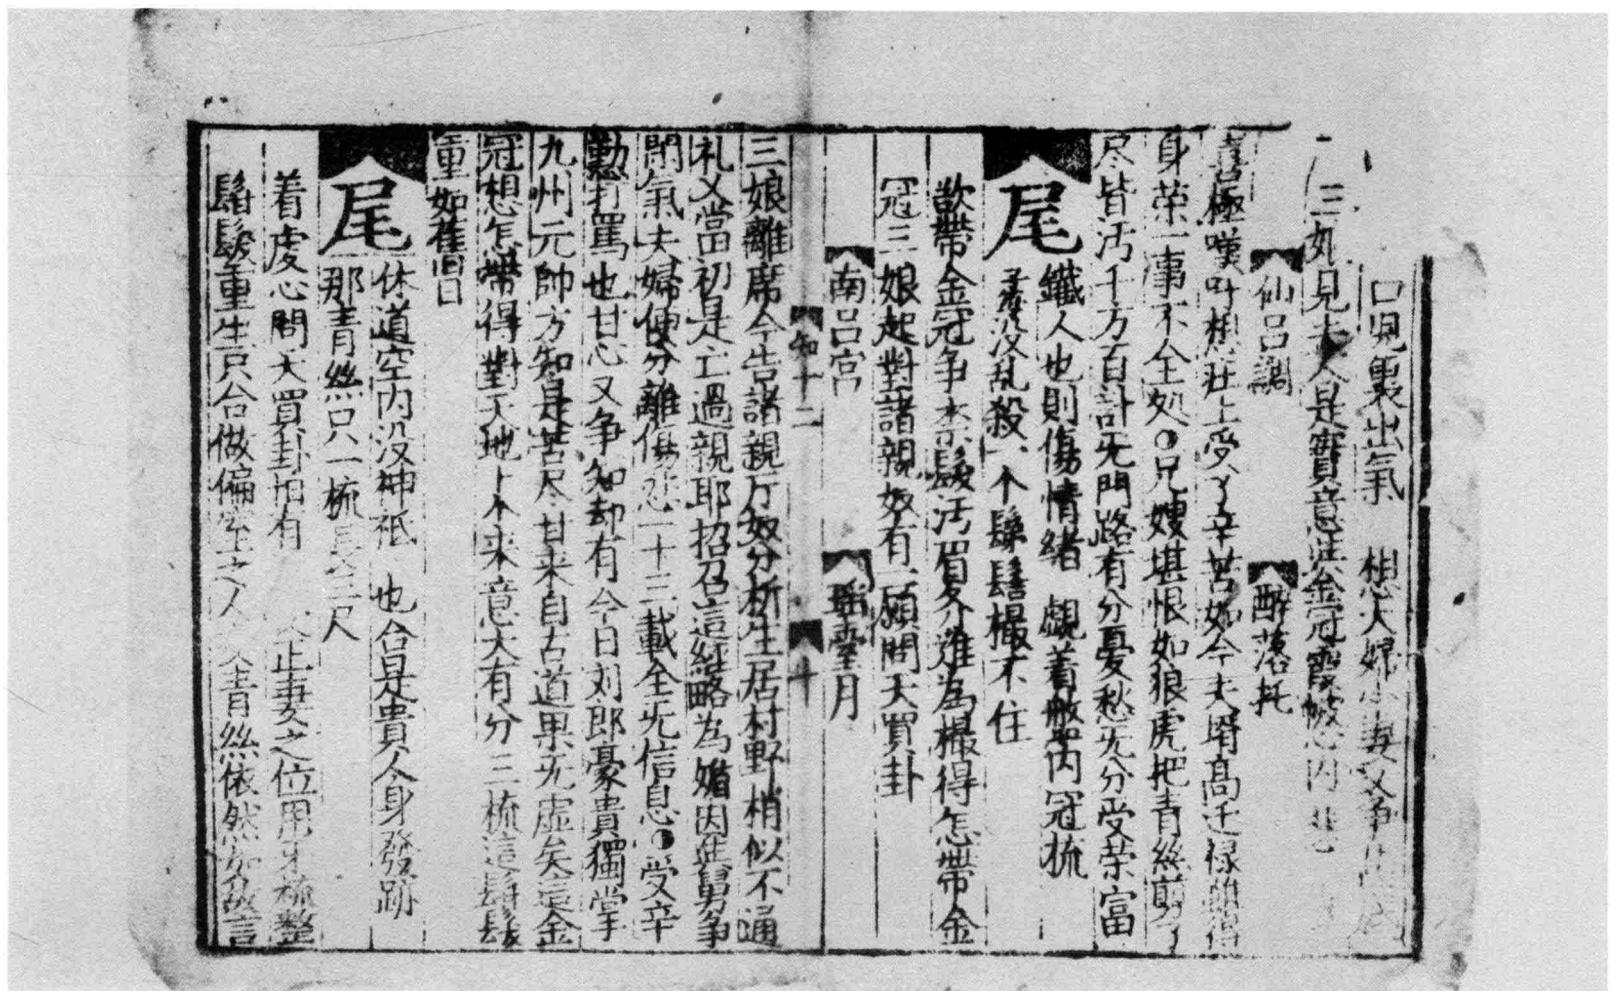 口児裏出氣　想夫婦小妻又争
三娘見夫人是實意其金冠霞帔心内
仙呂調　醉落托
喜極嘆吁想莊上受了辛苦如今夫壻髙迁禄
身荣一事不全処○兄嫂堪恨如狼虎把青絲剪了
尽皆污千方百計无門路有分憂愁无分受荣富
尾鐵人也則傷情緒　覷着盤内冠梳
没乱殺一个鬅髻撮不住
歆帶金冠争柰髮污眉外難為撮得怎帶金
冠三娘起對諸親奴有一願問天買卦
南呂宫　瑶臺月
知十二　十
三娘離席今告諸親斤奴分析生居村野梢似不通
礼又當初是亡過親耶招召這経略為媚因與舅争
閑氣夫婦便分離傷悲一十三載全无信息○受辛
懃打罵也甘心又争知却有今日刘郎豪貴獨掌
九州元帥方知是苦尽甘来自古道果无虚矣這金
冠想怎帶得對天地卜个来意大有分三梳這鬅髮
重如舊日
尾休道空内没神祇　也合是貴人身發跡
那青絲只一梳長三尺
着虔心問天買卦怕有　正妻之位用牙梳整
髮重生只合做偏室之人　青絲依然如故言